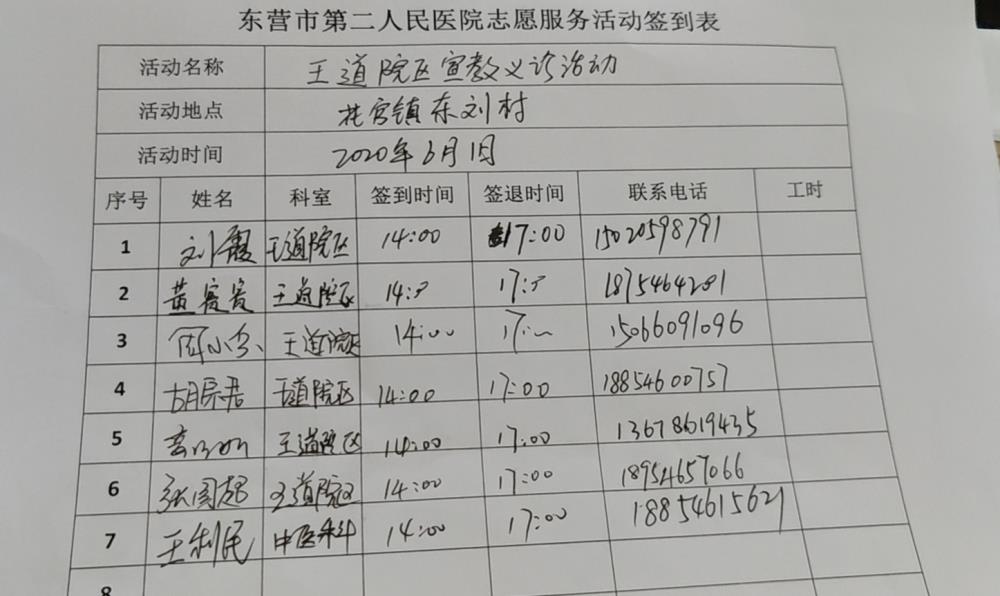 东营市第二人民医院志愿服务活动签到表
活动名称 王道院区宣教义诊活动
活动地点 花官镇东刘村
活动时间 2020年6月1日
序号 姓名 科室 签到时间 签退时间 联系电话 工时
1 刘霞 王道院区 14:00 17:00 15020598791
2 黄霞霞 王道院区 14: 17:
3 王道院区 14:00 17: 15066091096
4 王道院区 14:00 17:00 18854600757
5 王道院区 14:00 17:00 13678619435
6 张国超 王道院区 14:00 17:00 18954657066
7 王利民 中医科 14:00 17:00 18854615621
8